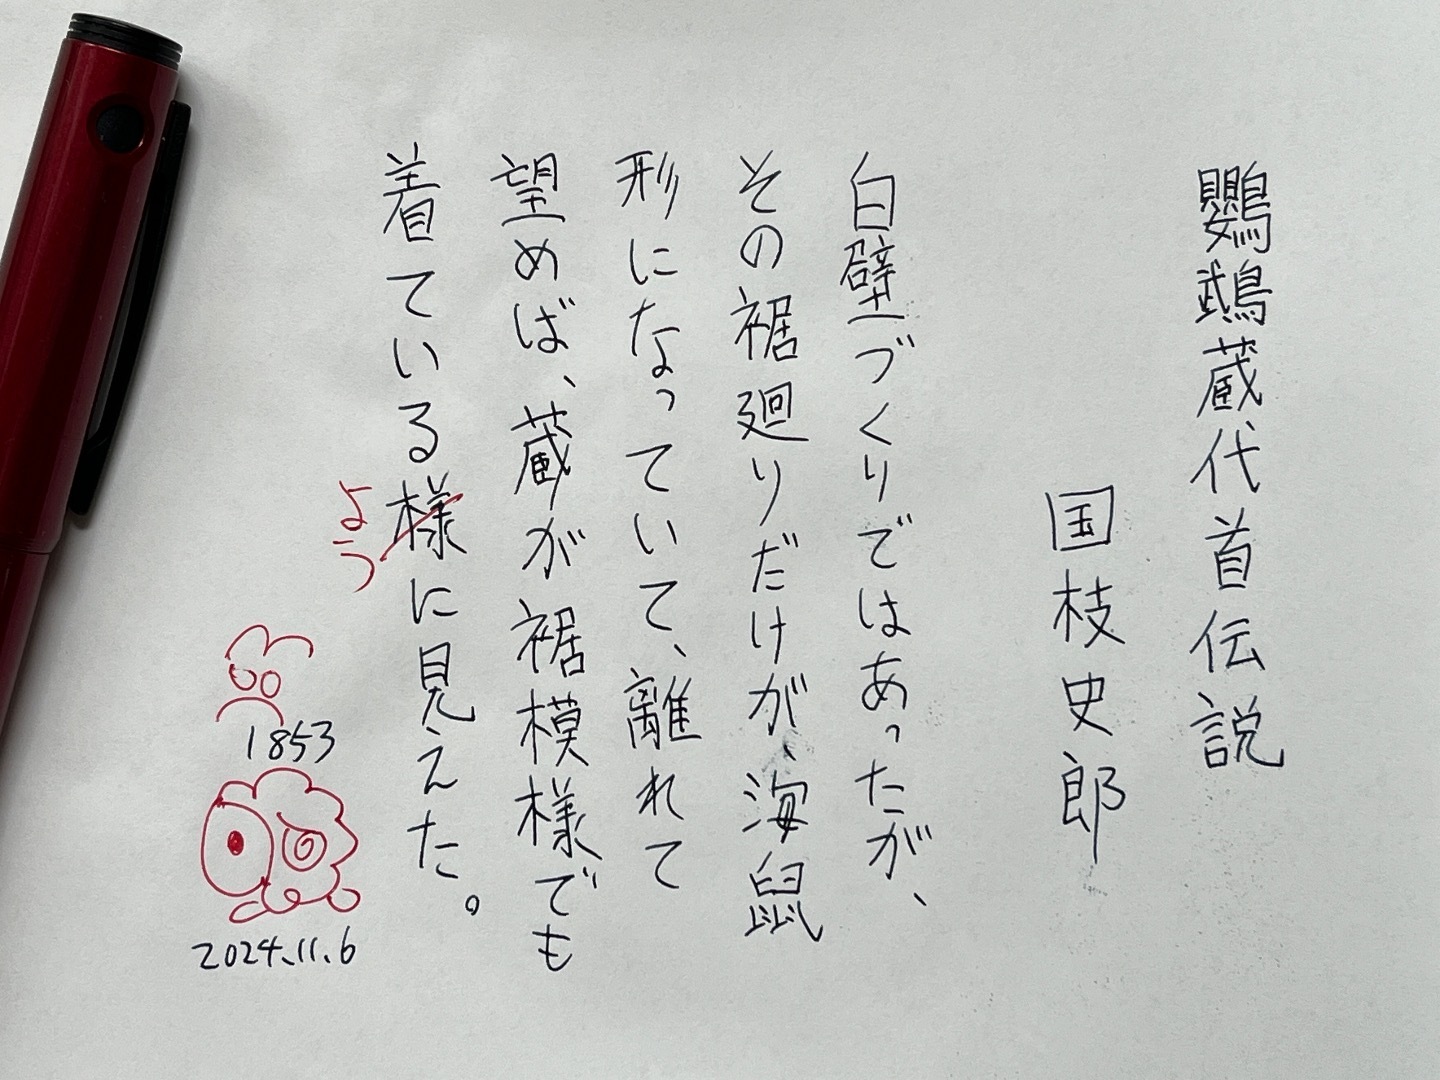 鸚鵡蔵代首伝説
国枝史郎
白壁づくりではあったが、
その裾廻りだけが、海鼠
形になっていて、離れて
望めば、蔵が裾模様でも
着ている様に見えた。
よう
1853
2024.11.6